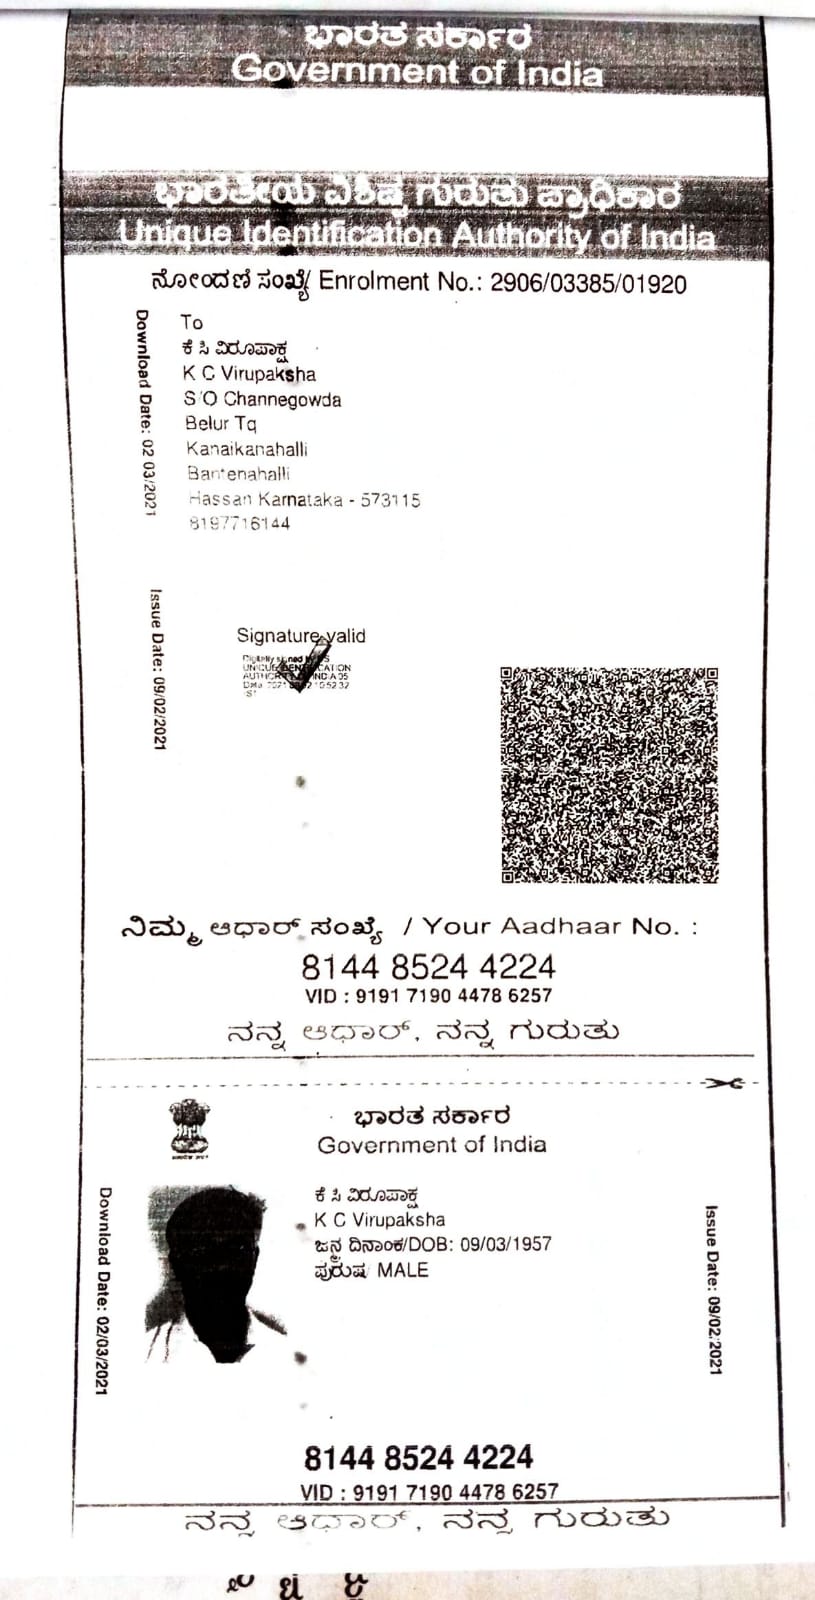 ಭಾರತ ಸರ್ಕಾರ
Government of India
ಭಾರತೀಯ ವಿಶಿಷ್ಟ ಗುರುತು ಪ್ರಾಧಿಕಾರ
Unique Identification Authority of India
ನೋಂದಣಿ ಸಂಖ್ಯೆ/ Enrolment No.: 2906/03385/01920
Download Date: 02 03/2021
To
ಕೆ ಸಿ ವಿರೂಪಾಕ್ಷ
K C Virupaksha
S/O Channegowda
Belur Tq
Kanaikanahalli
Bantenahalli
Hassan Karnataka - 573115
8197716144
Issue Date: 09/02/2021
Signature valid
Digitally signed by DS
UNIQUE IDENTIFICATION
AUTHORITY OF INDIA 05
ನಿಮ್ಮ ಆಧಾರ್ ಸಂಖ್ಯೆ / Your Aadhaar No. :
8144 8524 4224
VID : 9191 7190 4478 6257
ನನ್ನ ಆಧಾರ್, ನನ್ನ ಗುರುತು
ಭಾರತ ಸರ್ಕಾರ
Government of India
Download Date: 02/03/2021
ಕೆ ಸಿ ವಿರೂಪಾಕ್ಷ
K C Virupaksha
ಜನ್ಮ ದಿನಾಂಕ/DOB: 09/03/1957
ಪುರುಷ/ MALE
Issue Date: 09/02/2021
8144 8524 4224
VID : 9191 7190 4478 6257
ನನ್ನ ಆಧಾರ್, ನನ್ನ ಗುರುತು